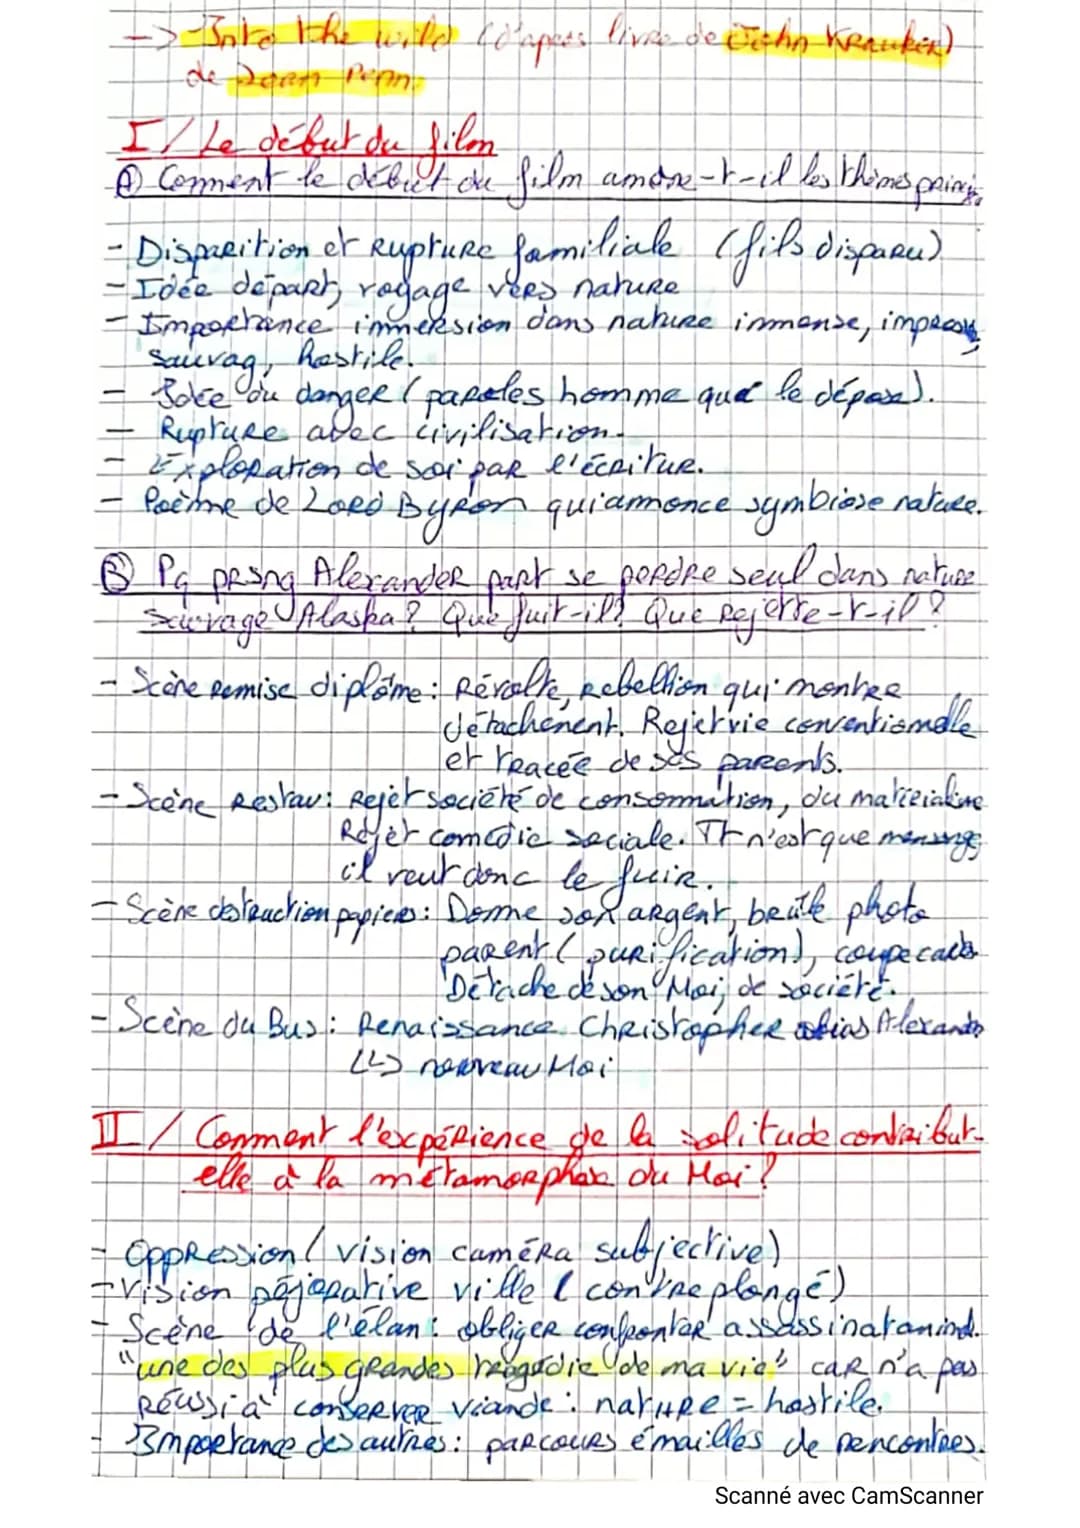 -> Into the wild (d'après livre de John Krauker)
de Sean Penn.
I / Le début du film
A Comment le début du film amorce-t-il les thèmes princip.
- Disparition et Rupture familiale (fils disparu)
- Idée départ, voyage vers nature
- Importance immersion dans nature immense, impress,
sauvag, hostile.
- Idée du danger (paroles homme qui le dépose).
- Rupture avec civilisation.
- Exploration de soi par l'écriture.
- Poème de Lord Byron qui annonce symbiose nature.
B Pq prsng Alexander part se perdre seul dans nature
sauvage Alaska? Que fuit-il? Que rejette-t-il?
- Scène remise diplôme: Révolte, rebellion qui montre
détachement. Rejet vie conventionnelle
et tracée de ses parents.
- Scène Restau: Rejet société de consommation, du matérialisme
Rejet comédie sociale. Tt n'est que mensonge,
il veut donc le fuir.
- Scène destruction papiers: Donne son argent, brûle photo
parent (purification), coupe carte
Détache de son Moi, de société.
- Scène du Bus: Renaissance Christopher alias Alexander
(L> nouveau Moi
II / Comment l'expérience de la solitude contribut-
elle à la métamorphose du Moi?
- Oppression (vision caméra subjective)
- Vision péjorative ville (contre plongé)
- Scène de l'élan: obliger confronter assassinat anind.
"une des plus grandes tragédie de ma vie" car n'a pas
réussi à conserver viande: nature = hostile.
- Importance des autres: parcours émaillés de rencontres.
Scanné avec CamScanner